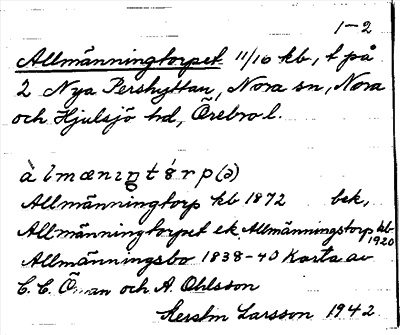 1-2
Allmänningtorpet 11/16 kb, t på
2 Nya Pershyttan, Nora sn, Nora
och Hjulsjö hd, Örebro l.
àlmæniŋtórp(ə)
Allmänningtorp kb 1872 bek.
Allmänningtorpet ek. Allmänningstorp kb
1920
Allmänningsbo 1838-40 Karta av
C. C. Öman och A. Ohlsson
Kerstin Larsson 1942